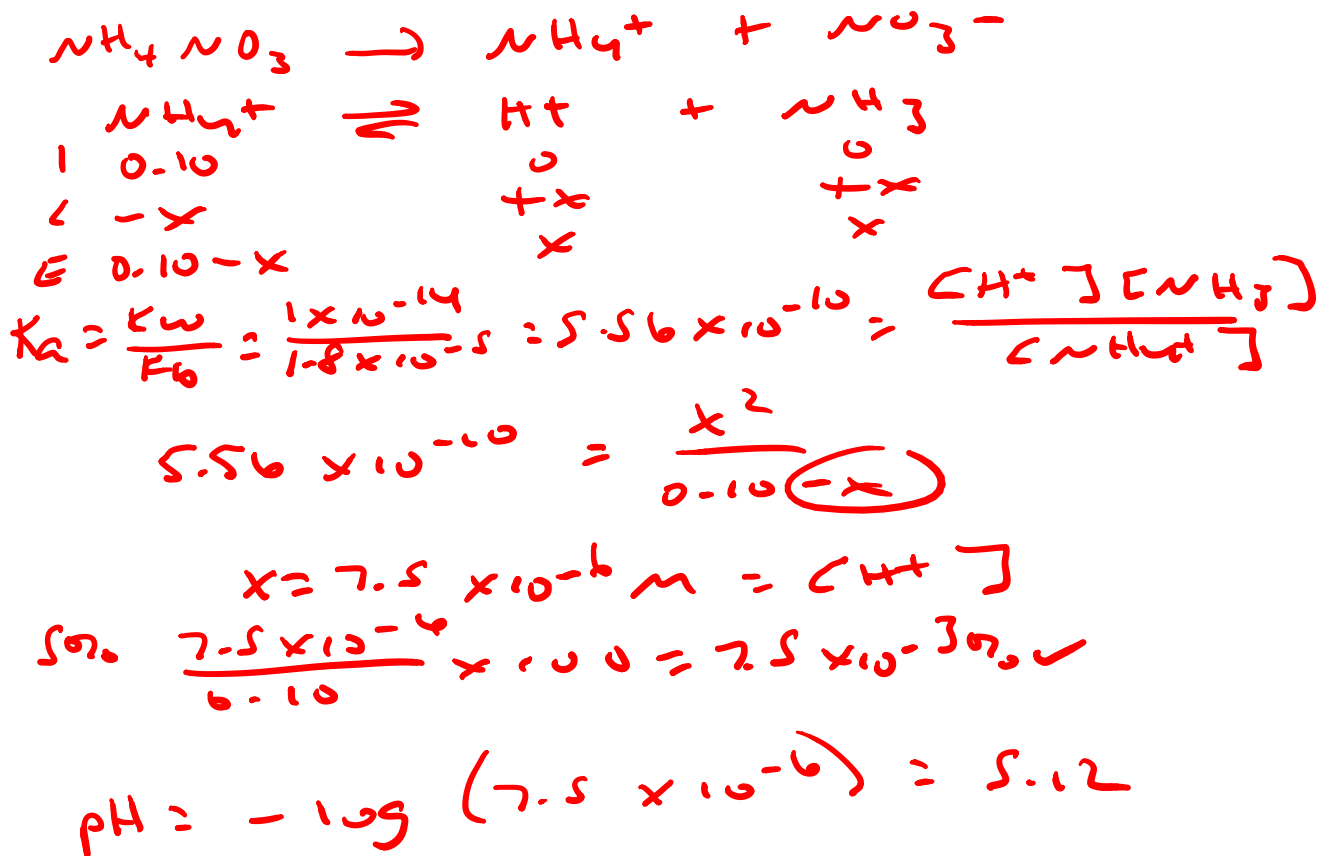 NH₄NO₃ → NH₄⁺ + NO₃⁻
NH₄⁺ ⇌ H⁺ + NH₃
I 0.10 0 0
C -x +x +x
E 0.10-x x x
Ka = Kw/Kb = 1x10⁻¹⁴/1.8x10⁻⁵ = 5.56x10⁻¹⁰ = [H⁺][NH₃]/[NH₄⁺]
5.56 x10⁻¹⁰ = x²/0.10-x
x = 7.5 x10⁻⁶ M = [H⁺]
5% 7.5x10⁻⁶/0.10 x100 = 7.5x10⁻³% ✓
pH = -log (7.5 x10⁻⁶) = 5.12